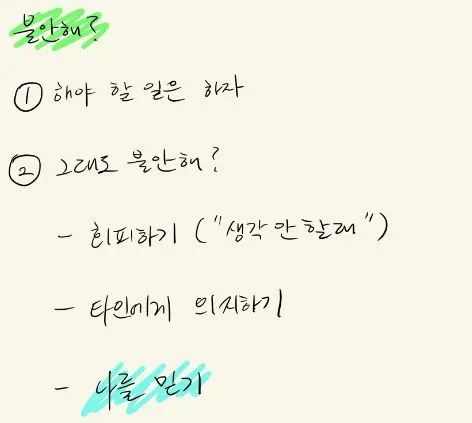 불안해?
① 해야 할 일은 하자
② 그래도 불안해?
- 회피하기 ("생각 안 할래")
- 타인에게 의지하기
- 나를 믿기